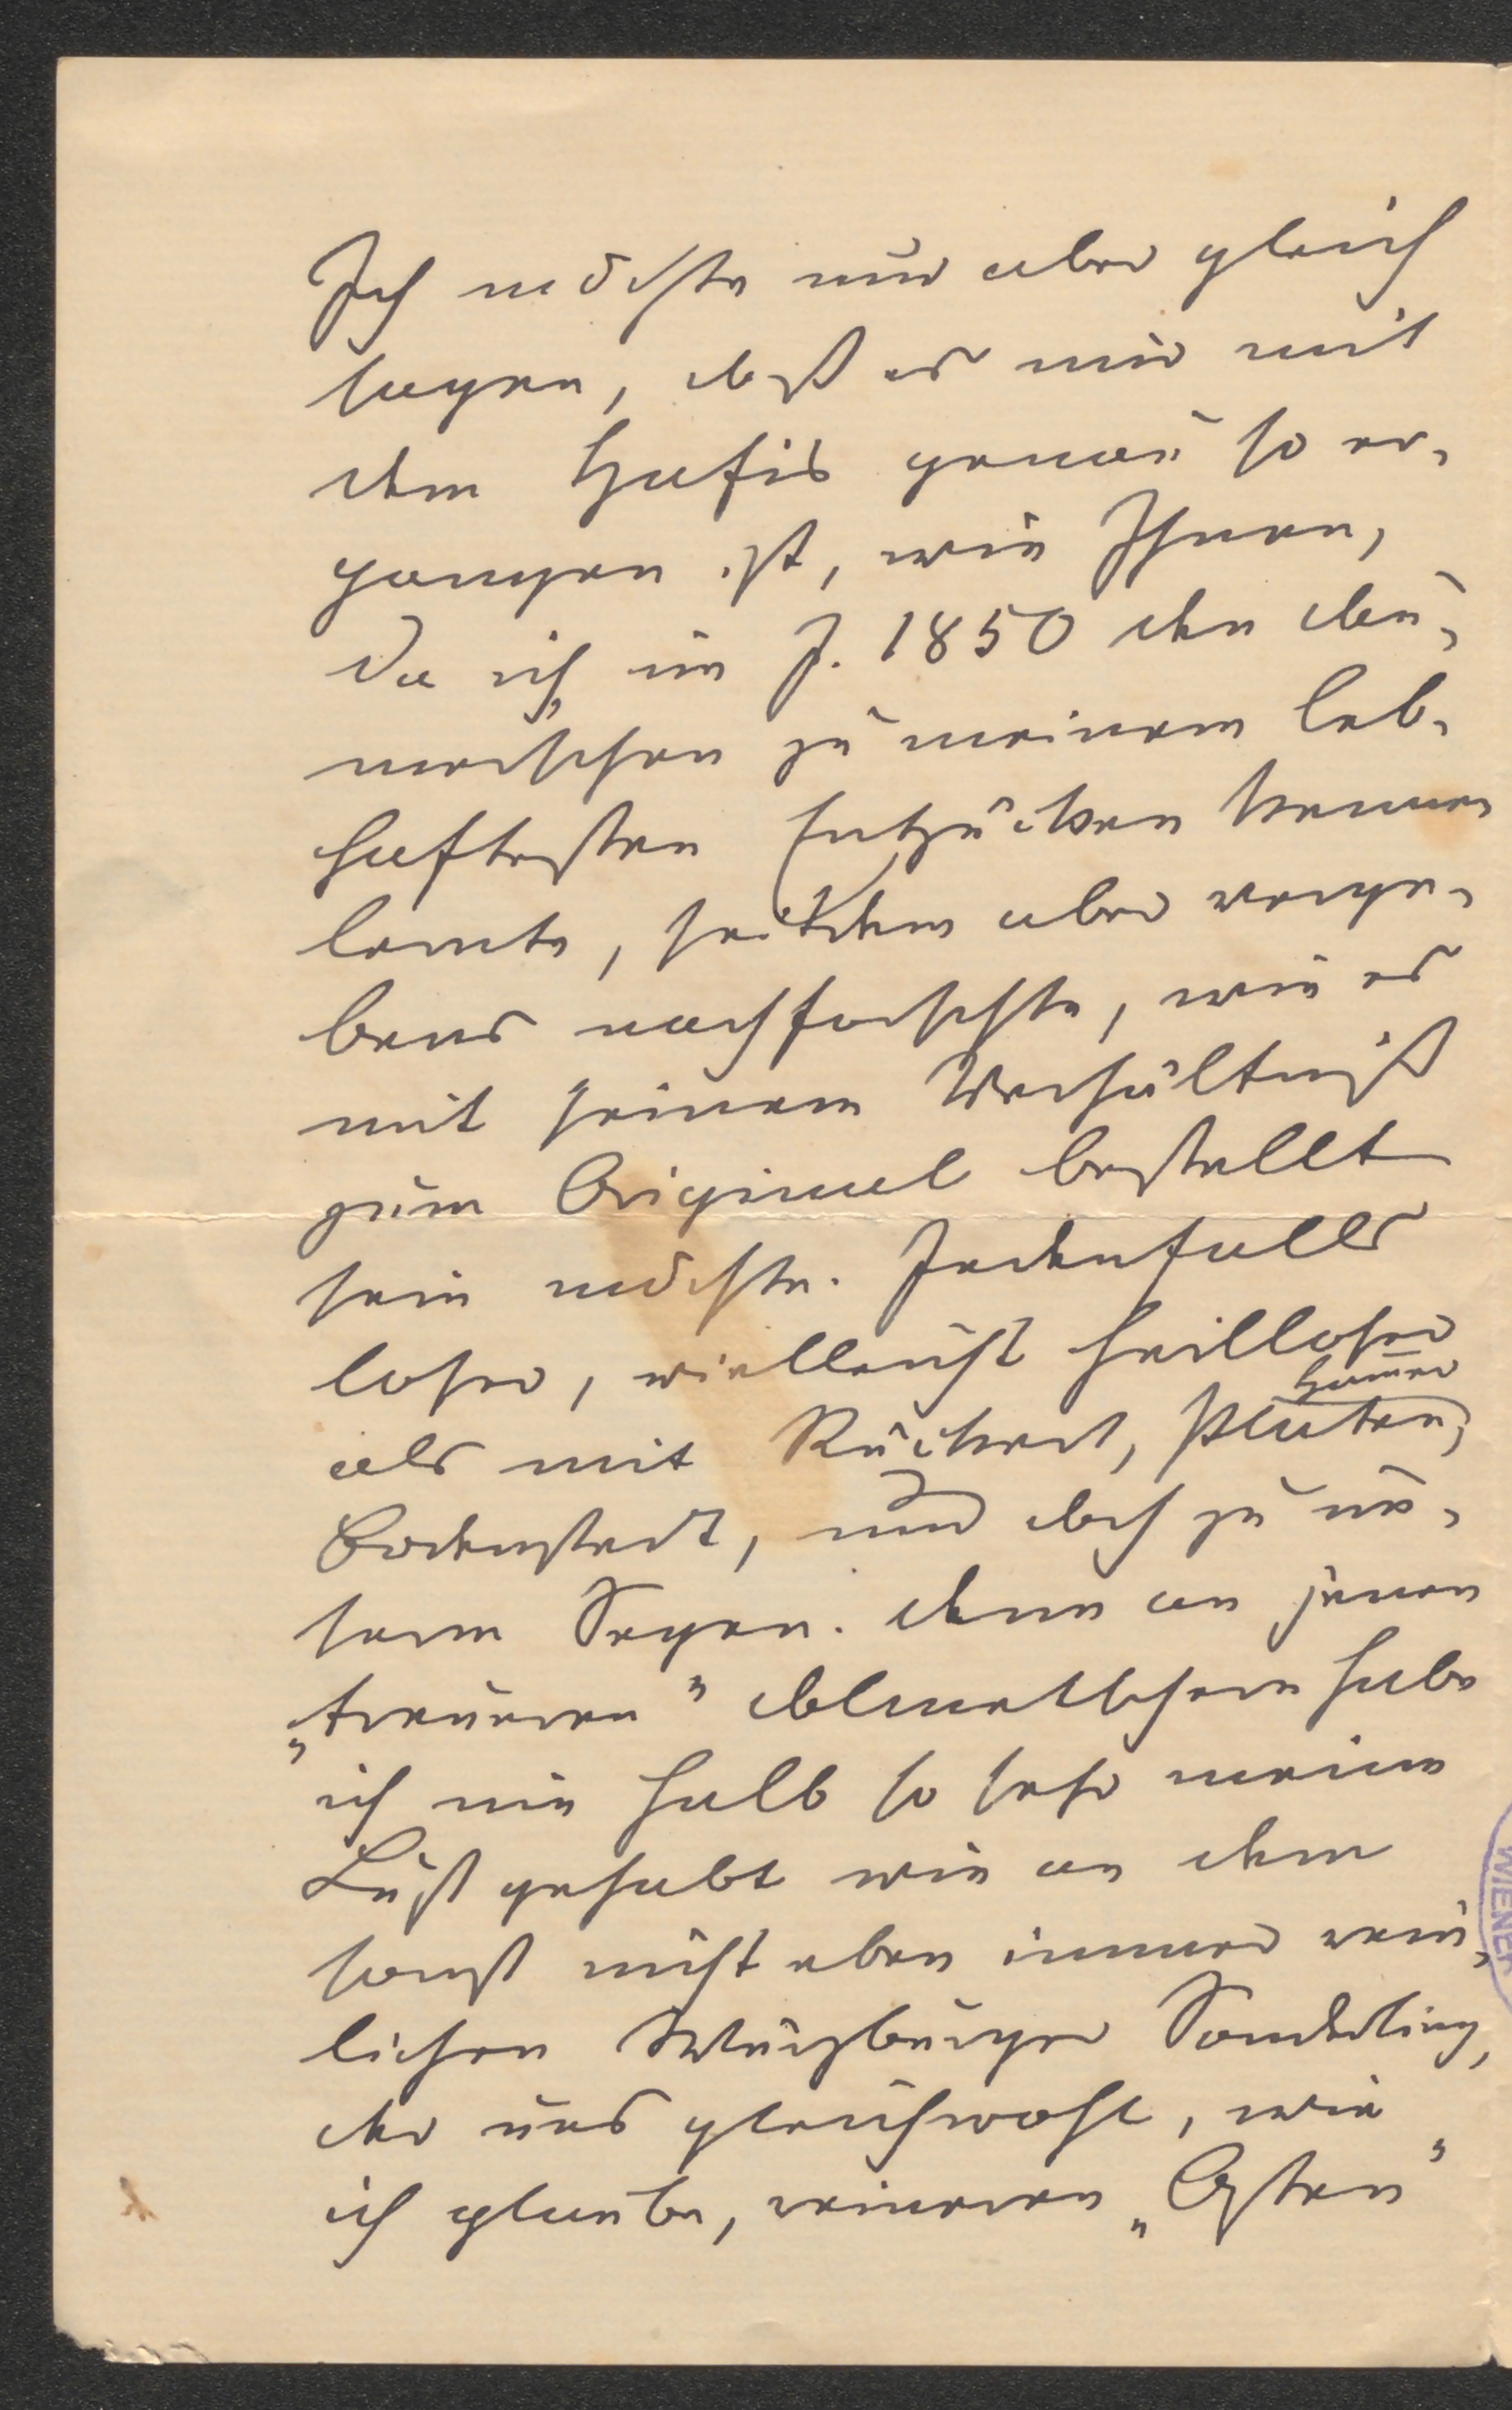 Ich möchte nur aber gleich
sagen, daß es mir mit
dem Hafis genau so er-
gangen ist, wie Ihnen,
da ich im J. 1850 den Dau-
merschen zu meinem leb-
haftesten Entzücken kennen
lernte, seitdem aber verge-
bens nachforschte, wie es
mit seinem Verhältniß
zum Original bestellt
sein möchte. Jedenfalls
loser, vielleicht heilloser
Hammer
als mit Rückert, Platen,
Bodenstedt, und doch zu un-
serm Segen. Denn an jenen
„treueren" Dolmetschern habe
ich nie halb so sehr meine
Lust gehabt wie an dem
sonst nicht eben immer rein-
lichen Würzburger Sonderling,
der uns gleichwohl, wie
ich glaube, reineren „Osten"
WIENER